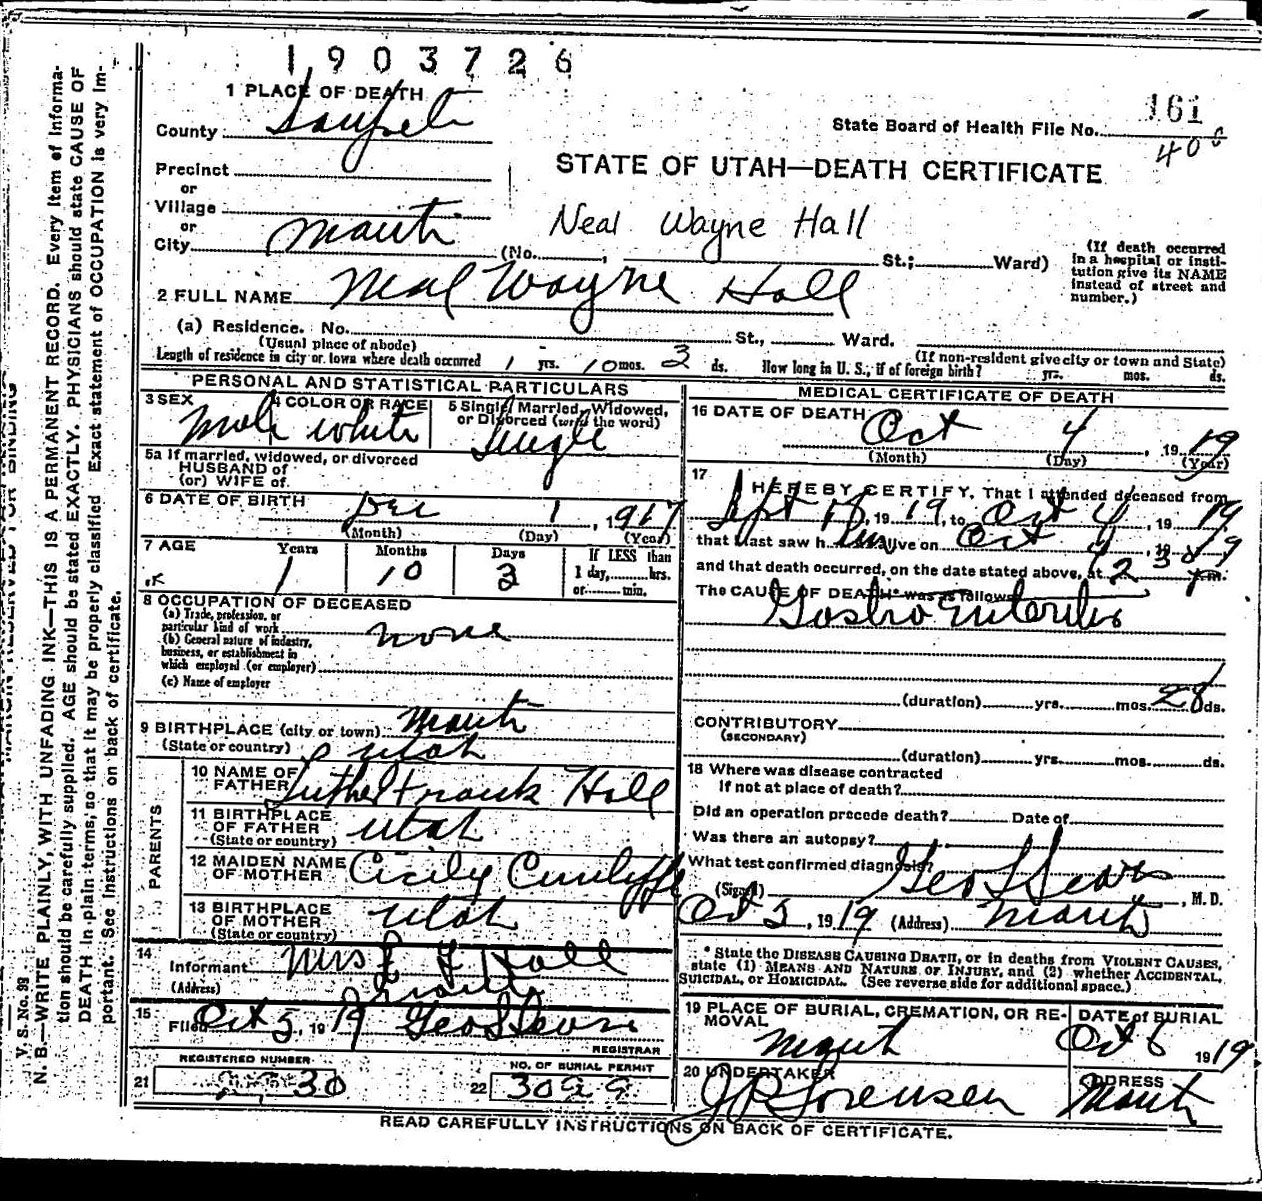 1903726
1 PLACE OF DEATH
County Sanpete
State Board of Health File No. 161
400
Precinct
or
Village
or
City Manti (No. , St.; Ward)
STATE OF UTAH—DEATH CERTIFICATE
Neal Wayne Hall
(If death occurred in a hospital or institution give its NAME instead of street and number.)
2 FULL NAME Neal Wayne Hall
(a) Residence. No. St., Ward.
(Usual place of abode) (If non-resident give city or town and State)
Length of residence in city or town where death occurred 1 yrs. 10 mos. 3 ds. How long in U. S., if of foreign birth? yrs. mos. ds.
PERSONAL AND STATISTICAL PARTICULARS
3 SEX Male
4 COLOR OR RACE White
5 Single, Married, Widowed, or Divorced (write the word) Single
5a If married, widowed, or divorced
HUSBAND of
(or) WIFE of
6 DATE OF BIRTH Dec 1, 1917
(Month) (Day) (Year)
7 AGE Years Months Days If LESS than
1 10 3 1 day, hrs.
or min.
8 OCCUPATION OF DECEASED
(a) Trade, profession, or
particular kind of work none
(b) General nature of industry,
business, or establishment in
which employed (or employer)
(c) Name of employer
9 BIRTHPLACE (city or town) Manti
(State or country) Utah
PARENTS
10 NAME OF FATHER Luther Frank Hall
11 BIRTHPLACE OF FATHER Utah
(State or country)
12 MAIDEN NAME OF MOTHER Cicily Cunliffe
13 BIRTHPLACE OF MOTHER Utah
(State or country)
14
Informant Mrs L F Hall
(Address) Manti
15
Filed Oct 5, 1919 Geo L Sears
REGISTRAR
REGISTERED NUMBER
21 30
NO. OF BURIAL PERMIT
22 3099
MEDICAL CERTIFICATE OF DEATH
16 DATE OF DEATH Oct 4, 1919
(Month) (Day) (Year)
17
I HEREBY CERTIFY, That I attended deceased from
Sept 18, 1919, to Oct 4, 1919
that I last saw him alive on Oct 4, 1919
and that death occurred, on the date stated above, at 12 30 P m.
The CAUSE OF DEATH* was as follows:
Gastro Enteritis
(duration) yrs. mos. 28 ds.
CONTRIBUTORY
(SECONDARY)
(duration) yrs. mos. ds.
18 Where was disease contracted
If not at place of death?
Did an operation precede death? Date of
Was there an autopsy?
What test confirmed diagnosis?
(Signed) Geo L Sears, M. D.
Oct 5, 1919 (Address) Manti
* State the DISEASE CAUSING DEATH, or in deaths from VIOLENT CAUSES,
state (1) MEANS AND NATURE OF INJURY, and (2) whether ACCIDENTAL,
SUICIDAL, or HOMICIDAL. (See reverse side for additional space.)
19 PLACE OF BURIAL, CREMATION, OR REMOVAL Manti
DATE of BURIAL Oct 6 1919
20 UNDERTAKER J P Sorensen
ADDRESS Manti
READ CAREFULLY INSTRUCTIONS ON BACK OF CERTIFICATE.
V. S. No. 82
MARGIN RESERVED FOR BINDING
N. B.—WRITE PLAINLY, WITH UNFADING INK—THIS IS A PERMANENT RECORD. Every item of information should be carefully supplied. AGE should be stated EXACTLY. PHYSICIANS should state CAUSE OF DEATH in plain terms, so that it may be properly classified. Exact statement of OCCUPATION is very important. See Instructions on back of certificate.